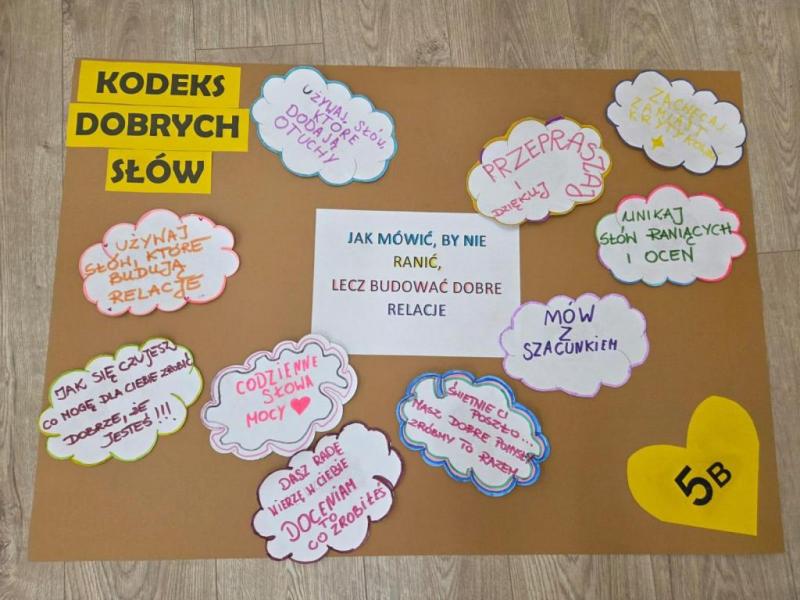 KODEKS
DOBRYCH
SŁÓW
UŻYWAJ SŁÓW,
KTÓRE
DODAJĄ
OTUCHY
PRZEPRASZAJ
I
DZIĘKUJ
ZACHĘCAJ
ZAMIAST
KRYTYKOWAĆ
UŻYWAJ
SŁÓW, KTÓRE
BUDUJĄ
RELACJE
JAK MÓWIĆ, BY NIE
RANIĆ,
LECZ BUDOWAĆ DOBRE
RELACJE
UNIKAJ
SŁÓW RANIĄCYCH
I OCEN
MÓW
Z
SZACUNKIEM
JAK SIĘ CZUJESZ
CO MOGĘ DLA CIEBIE ZROBIĆ
DOBRZE, ŻE
JESTEŚ!!!
CODZIENNE
SŁOWA
MOCY
ŚWIETNIE CI
POSZŁO...
MASZ DOBRE POMYSŁY
ZRÓBMY TO RAZEM
DASZ RADĘ
WIERZĘ W CIEBIE
DOCENIAM
TO
CO ZROBIŁEŚ
5B